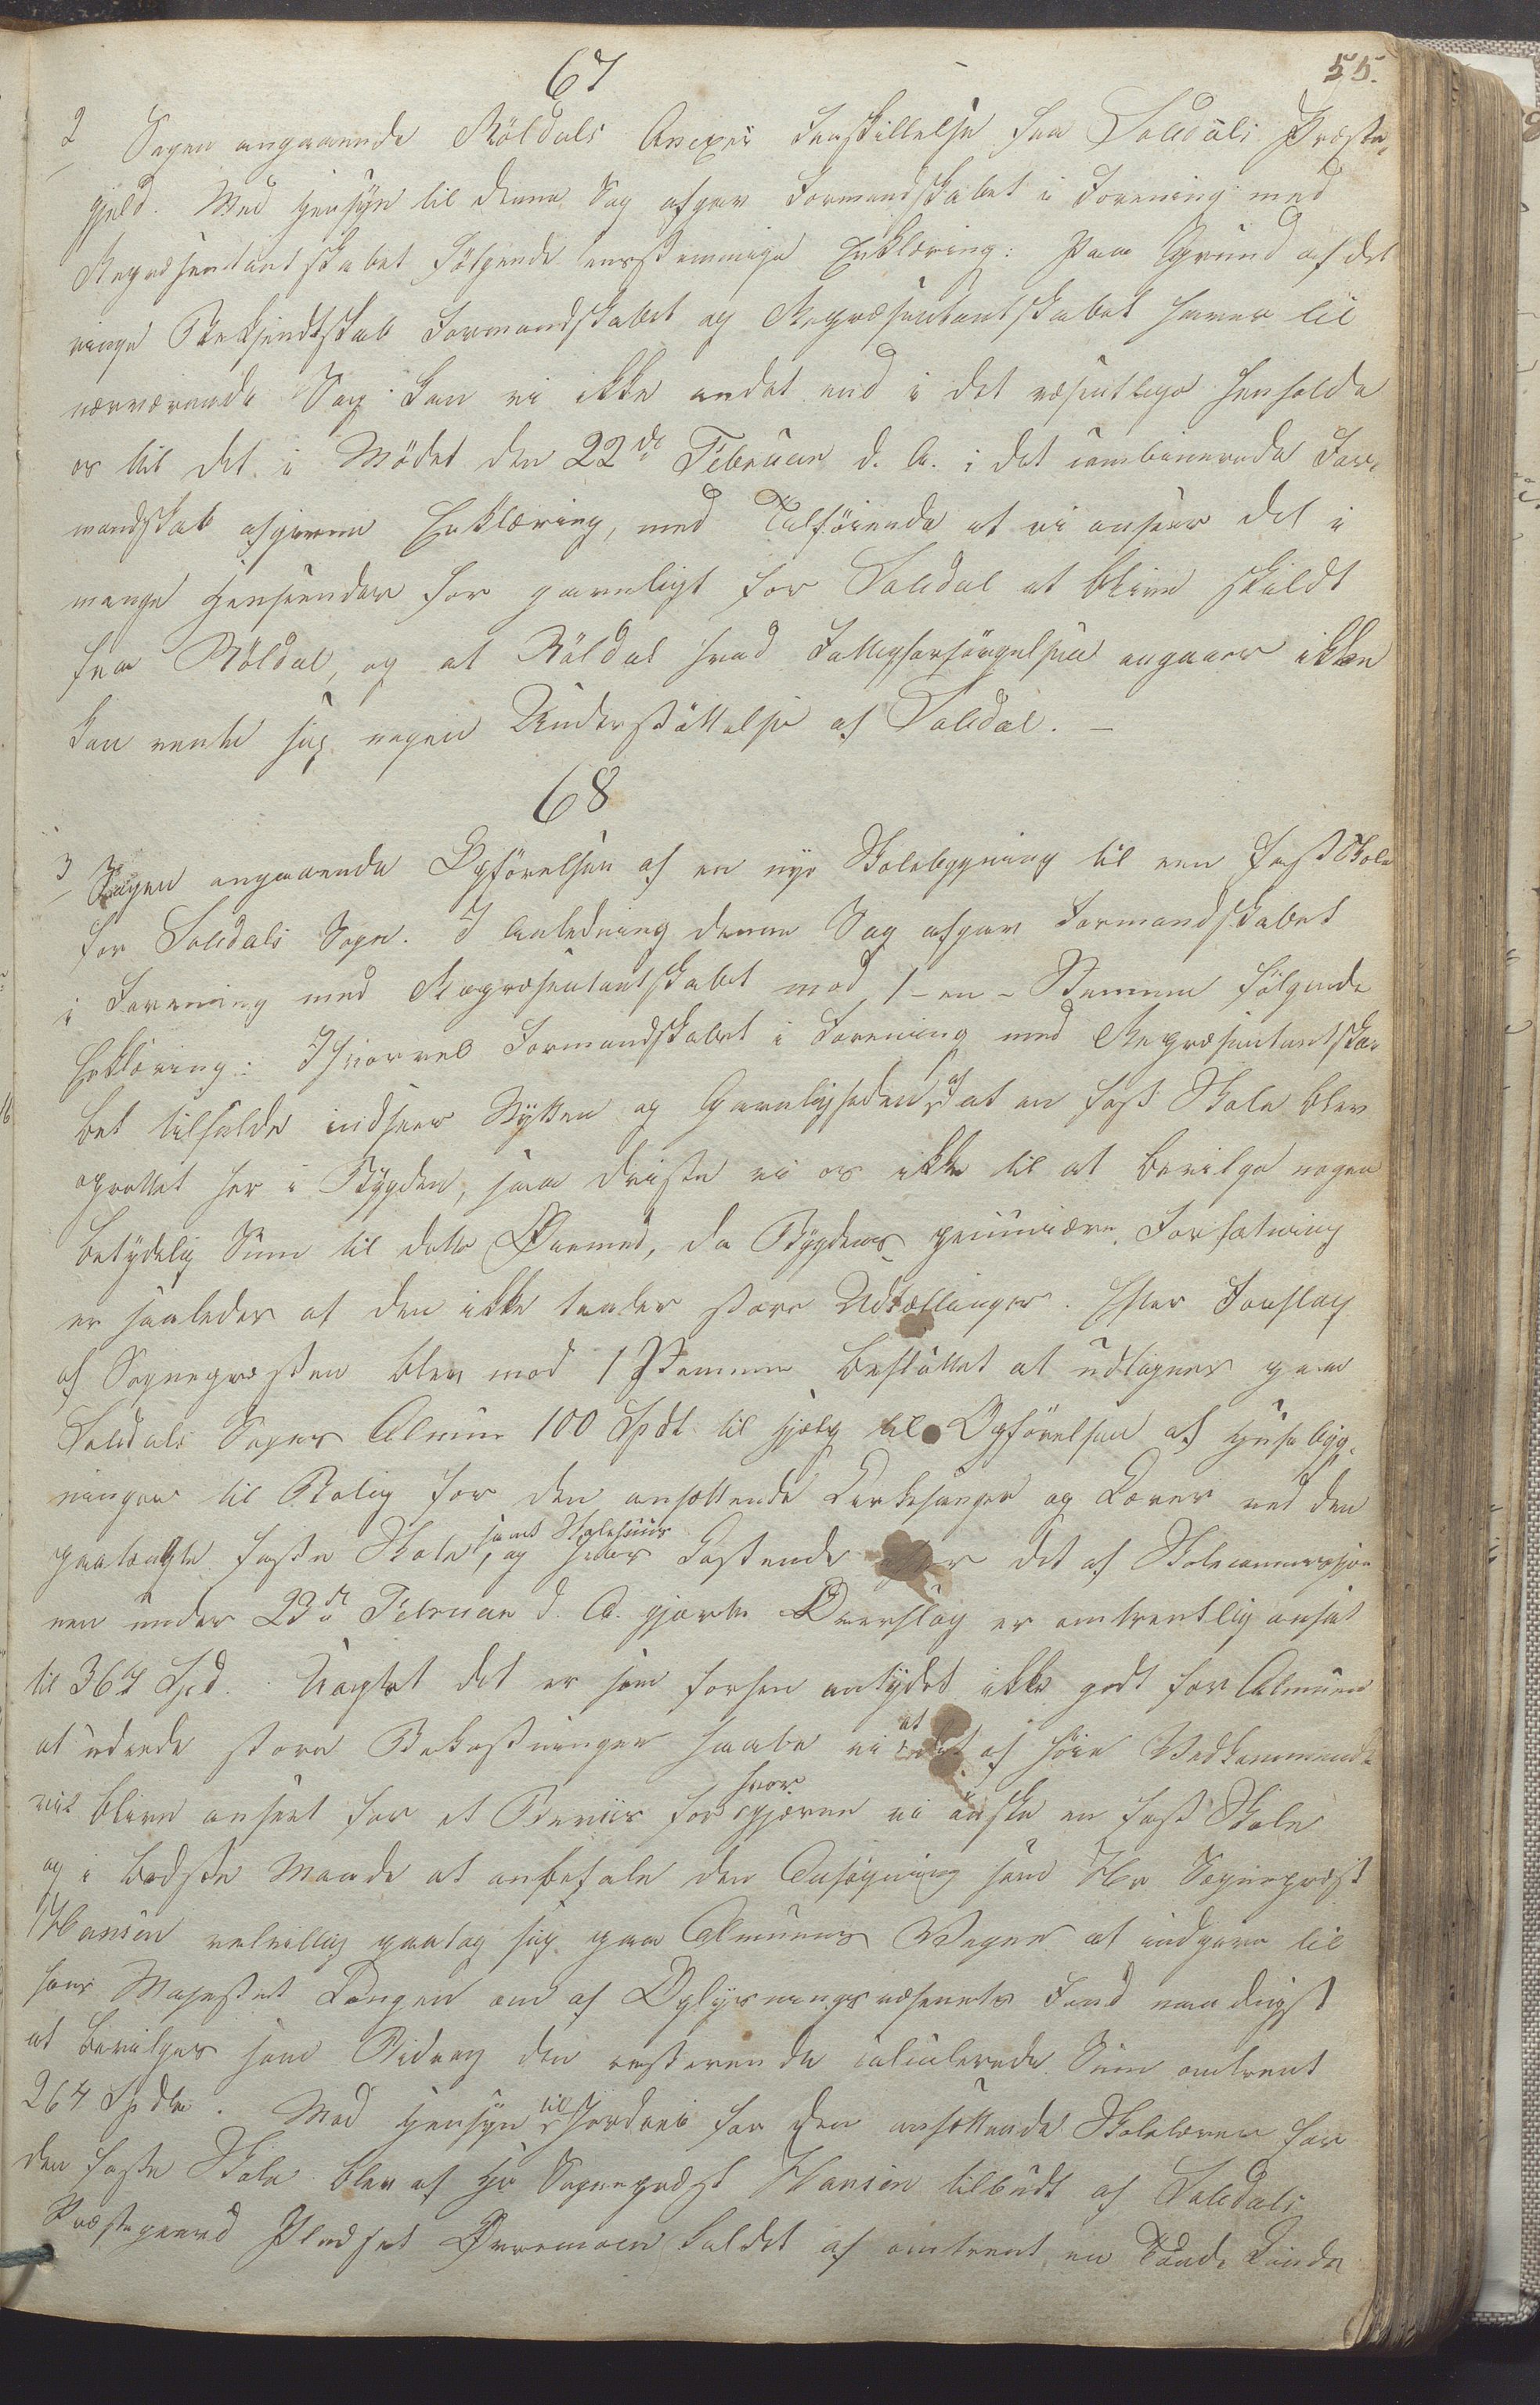 55.
67
2 Sagen angaaende Röldals Anexes Fraskillelse fra Suledals Præste-
gjeld. Med Hensyn til denne Sag afgav Formandskabet i Forening med
Repræsentantskabet følgende eensstemmige Erklæring: Paa Grund af det
ringe Bekjendtskab Formandskabet og Repræsentantskabet haver til
nærværende Sag kan vi ikke andet end i det væsentlige henholde
os til det i Mödet den 22de Februar d. A. i det combinerede For-
mandskab afgivne Erklæring, med Tilföiende at vi anseer det i
mange Hensender for gavnligt for Suledal at blive skildt
fra Röldal, og at Röldal hvad Fattigforsörgelsen angaaer ikke
kan vente sig nogen Understöttelse af Suledal. –
68
3 Sagen angaaende Opförelsen af en nye Skolebygning til een fast Skole
for Suledals Sogn. I Anledning denne Sag afgav Formandskabet
i Forening med Repræsentantskabet mod 1 – en – Stemme fölgende
Erklæring: Ihvorvel Formandskabet i Forening med Repræsentantska-
bet tilfulde indseer Nytten og Gavnligheden af at en fast Skole blev
oprettet her i Bygden, saa driste vi os ikke til at bevilge nogen
betydelig Sum til dette Öiemed, da Bygdens pecuniære Forfatning
er saaledes at den ikke taaler store Udtællinger. Efter Forslag
af Sognepræsten blev mod 1 Stemme besluttet at udlignes paa
Suledals Sogns Almue 100 Spdl til Hjelp til Opförelsen af Huusebyg-
ninger til Bolig for den ansættende Kirkesanger og Lærer ved den
paatænkte faste Skole, samt Skolehuus og hvis Kostende efter det af Skolecommissio-
nen under 23de Februar d. A. gjorte Overslag er omtrentlig ansat
til 364 Spd. Uagtet det er som forhen antydet ikke godt for Almuen
at udrede store Bekostninger haabe vi at det af höie Vedkommende
vil blive anseet for et Beviis for hvor gjærne vi önske en fast Skole
og i bedste Maade at anbefale den Ansögning som Hr Sognepræst
Hansen velvillig paatog sig paa Almuens Vegne at indgive til
hans Majestæt Kongen om af Oplysningsvæsenets Fond naadigst
at bevilges som Bidrag den resterende calculerede Sum omtrent
264 Spdlr. Med Hensyn til Jordvei for den ansættende Skolelærer for
den faste Skole blev af Hr Sognepræst Hansen tilbudt af Suledals
Præstegaard Pladset Övremoen kaldet af omtrent en Tønde